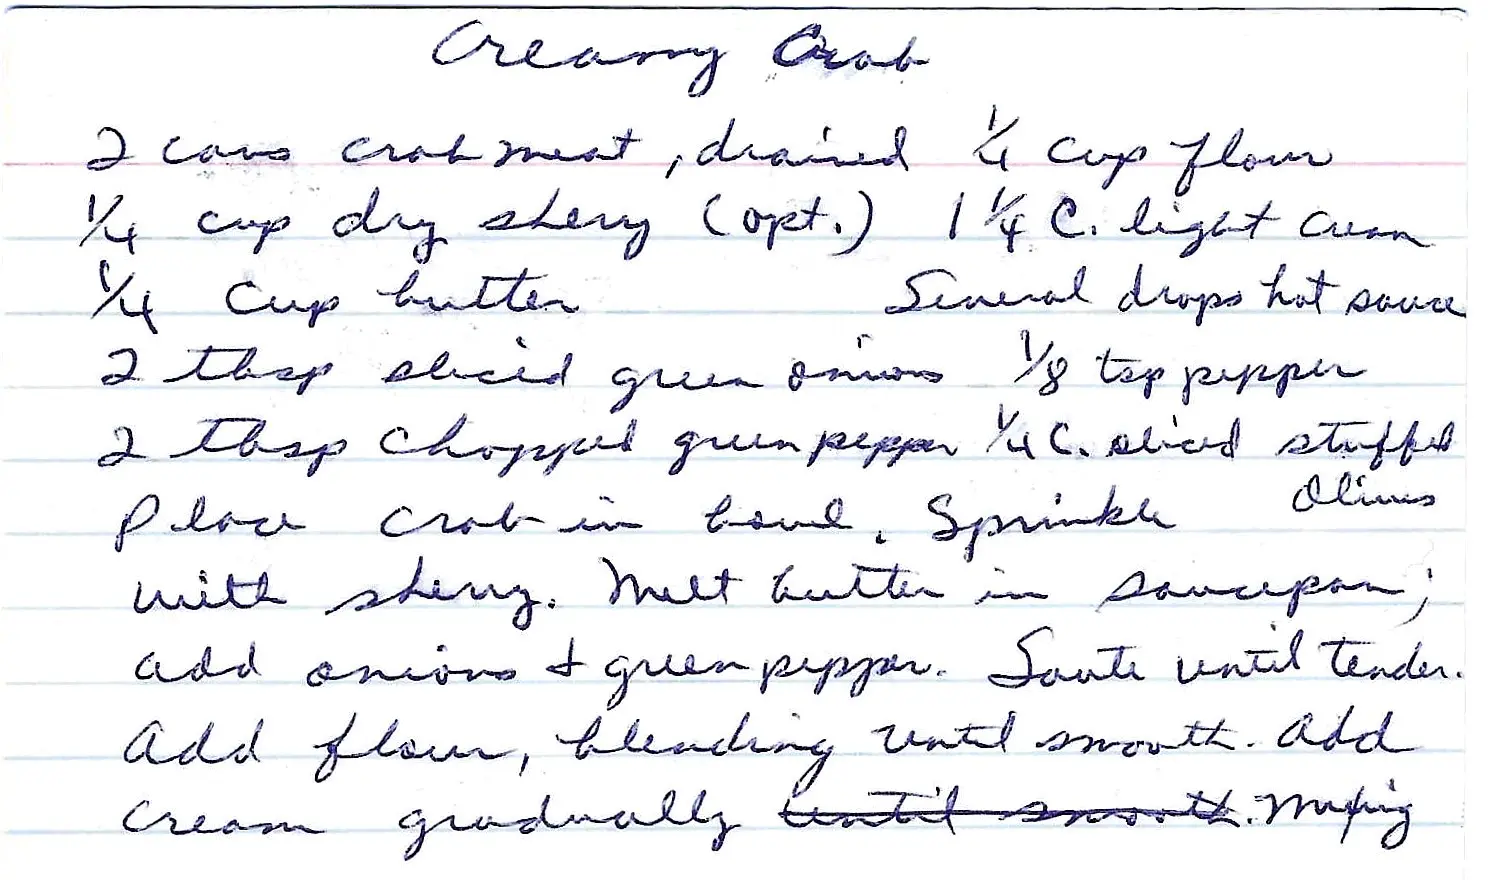 Creamy Crab
2 cans crab meat, drained 1/4 cup flour
1/4 cup dry sherry (opt.) 1 1/4 C. light cream
1/4 cup butter Several drops hot sauce
2 tbsp sliced green onions 1/8 tsp pepper
2 tbsp chopped green pepper 1/4 C. sliced stuffed
Olives
Place crab in bowl. Sprinkle
with sherry. Melt butter in saucepan;
add onions & green pepper. Saute until tender.
Add flour, blending until smooth. Add
cream gradually until smooth. Mixing